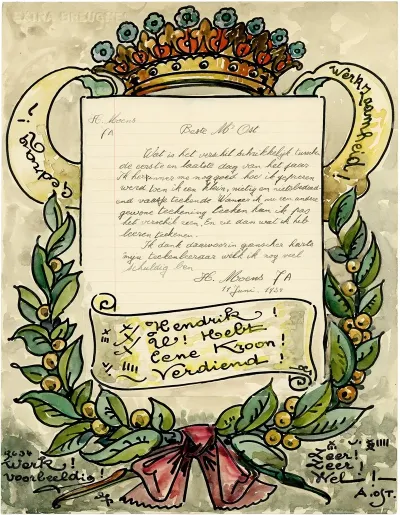 Gedrag!
Werkzaamheid!
H. Moens
7A
Beste Mr Ost
Wat is het verschil schrikkelijk tusschen
de eerste en laatste dag van het jaar
Ik herinner me nog goed hoe ik geprezen
werd toen ik een klein, nietig en
vaasje teekende. Wanneer ik nu een andere
gewone teekening teeken kan ik pas
het verschil zien, En zie dan wat ik heb
leeren teekenen.
Ik dank daarvoor in ganscher harte
mijn teekenleeraar welk ik nog veel
schuldig ben
H. Moens 7A
Juni, 1934
Hendrik!
U! Hebt
Eene Kroon!
Verdiend!
Werk!
voorbeeldig!
Zeer!
Zeer!
Wel!
A. OST.